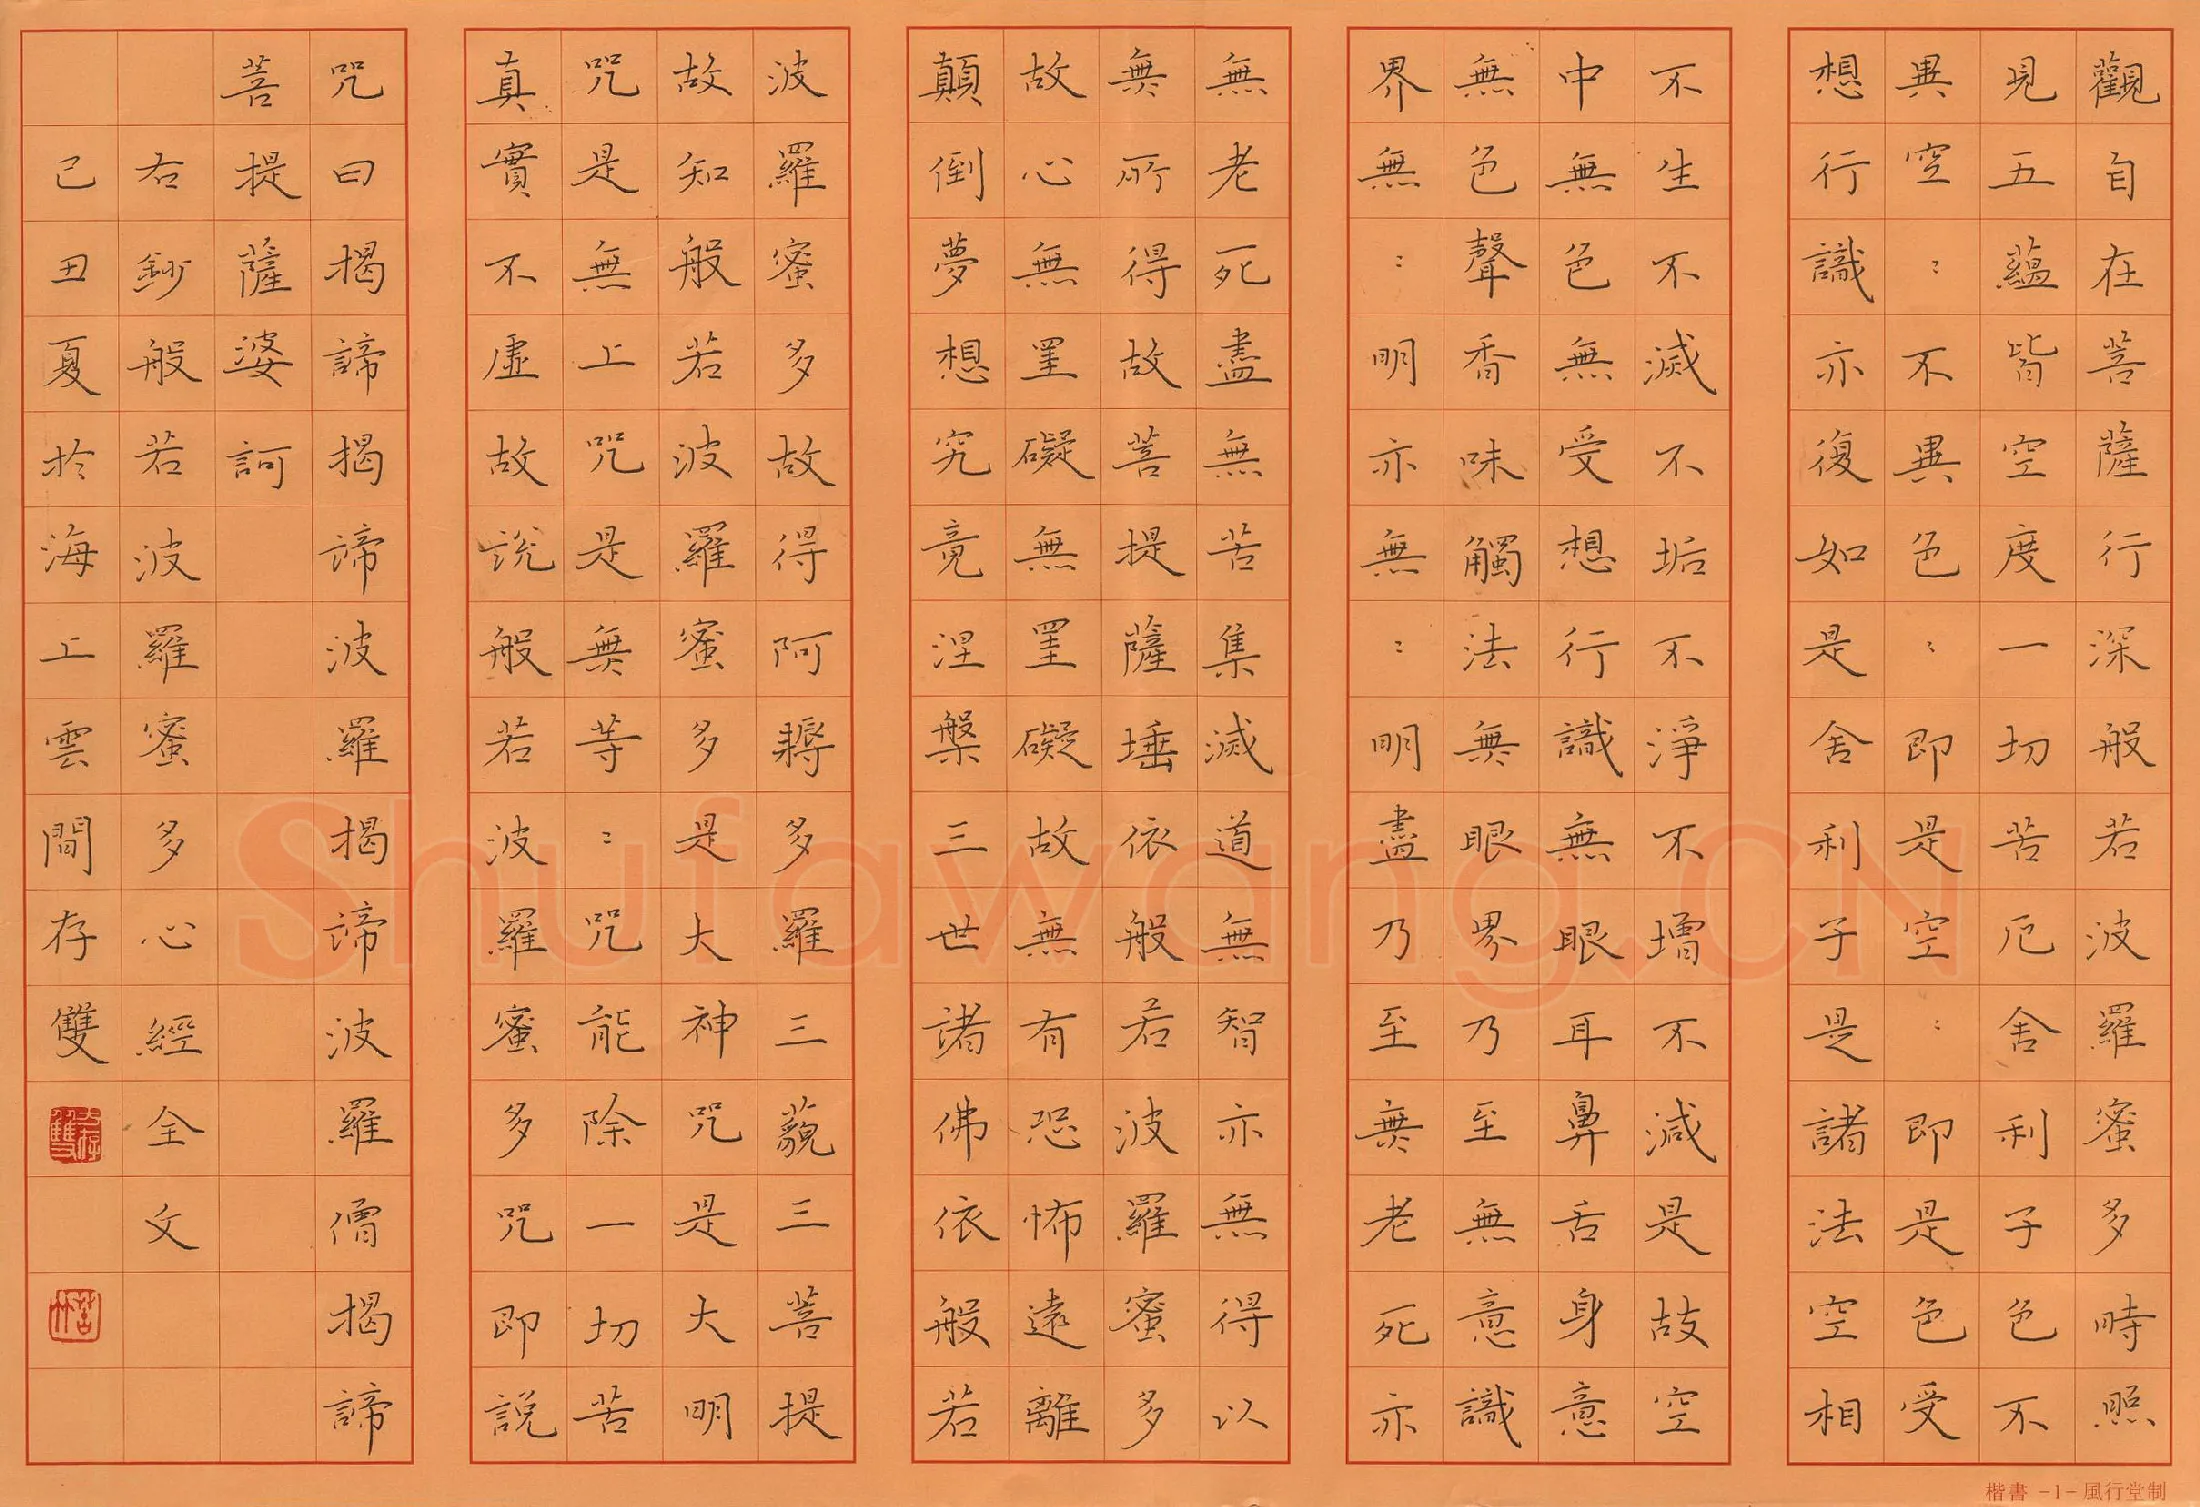 觀自在菩薩行深般若波羅蜜多時照
見五蘊皆空度一切苦厄舍利子色不
異空:不異色:即是空:即是色受
想行識亦復如是舍利子是諸法空相
不生不滅不垢不淨不增不減是故空
中無色無受想行識無眼耳鼻舌身意
無色聲香味觸法無眼界乃至無意識
界無:明亦無:明盡乃至無老死亦
無老死盡無苦集滅道無智亦無得以
無所得故菩提薩埵依般若波羅蜜多
故心無罣礙無罣礙故無有恐怖遠離
顛倒夢想究竟涅槃三世諸佛依般若
波羅蜜多故得阿耨多羅三藐三菩提
故知般若波羅蜜多是大神咒是大明
咒是無上咒是無等:咒能除一切苦
真實不虛故說般若波羅蜜多咒即說
咒曰揭諦揭諦波羅揭諦波羅僧揭諦
菩提薩婆訶
右鈔般若波羅蜜多心經全文
己丑夏於海上雲間存雙
楷書 -1- 風行堂制
Shufawang.CN